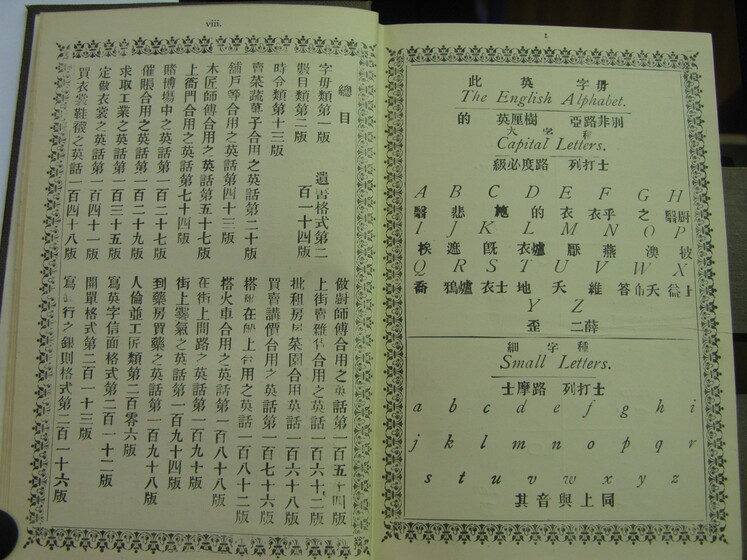 viii.
總目
字毋類第一版
數目類第二版
時令類第十三版
賣菜蔬菓子合用之英話第二十版
舖戶等合用之英話第四十三版
木匠師傅合用之英話第五十七版
上衙門合用之英話第七十四版
賭博場中之英話第一百二十七版
催賬合用之英話第一百二十九版
求取工業之英話第一百三十五版
定做衣裳之英話第一百四十一版
買衣裳鞋襪之英話一百四十八版
遺書格式第二百一十四版
做廚師傅合用之英話第一百五十四版
上街賣雜貨合用之英話一百六十二版
批租房屋菜園合用英話一百六十八版
買賣講價合用之英話第一百七十六版
搭船在船上合用之英話一百八十二版
搭火車合用之英話第一百八十八版
在街上問路之英話第一百九十版
街上雾氣之英話第一百九十四版
到藥房買藥之英話第一百九十八版
人倫並工匠類第二百零六版
寫英字信面格式第二百一十二版
開單格式第二百一十三版
寫行之銀則格式第二百一十六版
1
此 英 字毋
The English Alphabet.
的 英厘樹 亞路非毋別
大字種
Capital Letters.
級必度路 列打士
A B C D E F G H
醫 悲 施 的 衣 衣乎 之 翳厨
I J K L M N O P
I J K L M N O P
Q R S T U V W X
Y Z
歪 二薛
細字種
Small Letters.
士摩路 列打士
a b c d e f g h i
j k l m n o p q r
s t u v w x y z
其音與上同